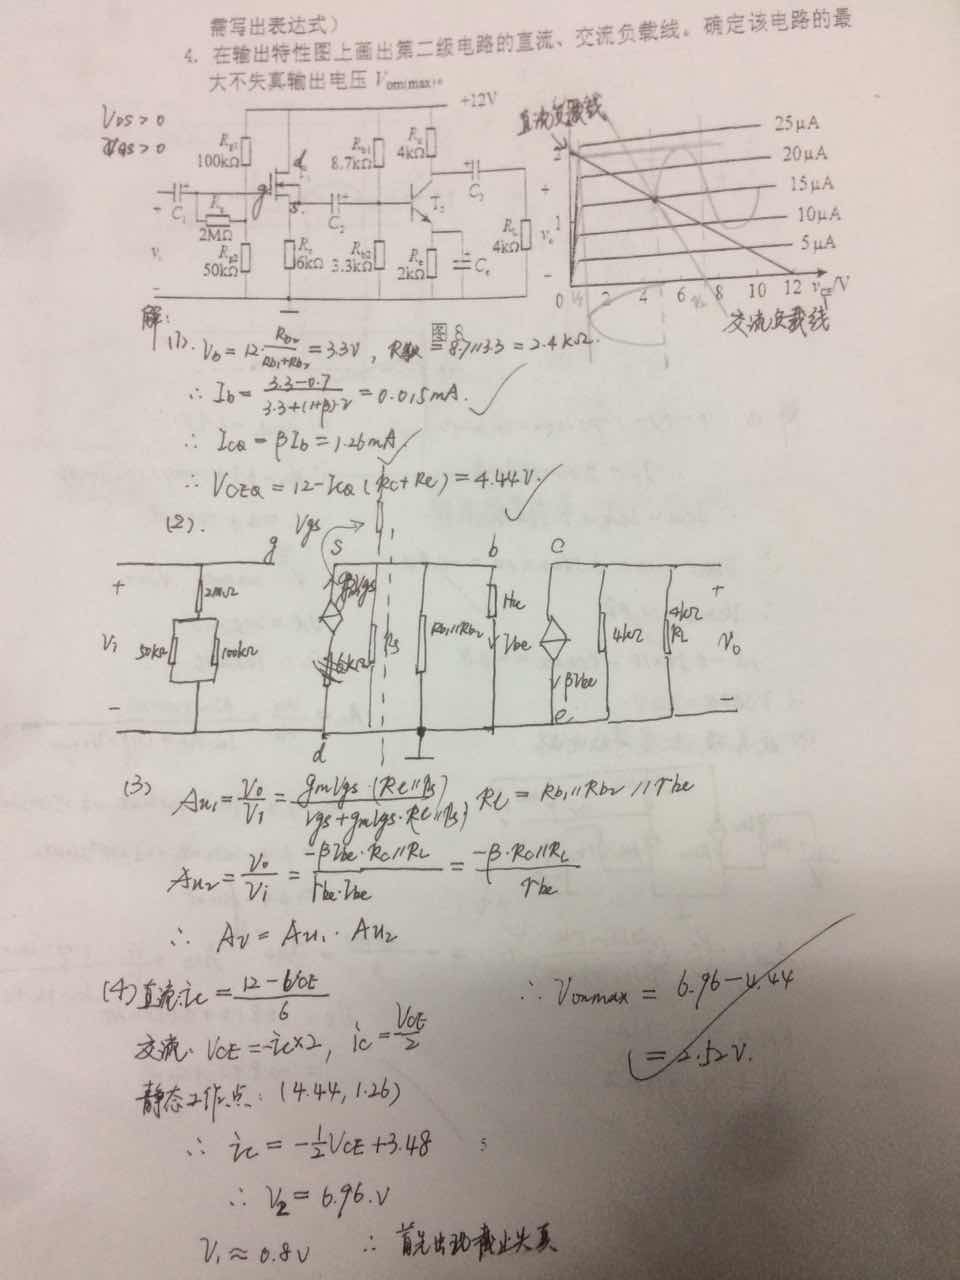 需写出表达式）
4. 在输出特性图上画出第二级电路的直流、交流负载线。确定该电路的最
大不失真输出电压 Vom(max)。
VDS>0
VGS>0
+12V
Rg1
100kΩ
d
g
s
C1
Rg
2MΩ
Rg2
50kΩ
6kΩ
C2
Rb1
8.7kΩ
Rb2
3.3kΩ
Rc
4kΩ
T2
Re
2kΩ
Ce
C3
RL
4kΩ
vo
vi
直流负载线
2
1
0
25μA
20μA
15μA
10μA
5μA
V1 2 4 6 V2 8 10 12 vCE/V
交流负载线
图 8
解:
(1). Vb = 12·Rb2/(Rb1+Rb2) = 3.3V, = 8.7//3.3 = 2.4kΩ.
∴ Ib = (3.3-0.7)/(3.3+(1+β)·2) = 0.015mA.
∴ ICQ = βIb = 1.26mA.
∴ VCEQ = 12-ICQ(Rc+Re) = 4.44V.
(2).
Vgs
g s b c
+ 2MΩ gmVgs Hie 4kΩ 4kΩ RL +
Vi 50kΩ 100kΩ 6kΩ Rs Rb1//Rb2 Vbe βVbe Vo
- d e -
(3) Au1 = Vo/Vi = gmVgs·(RL//Rs)/(Vgs+gmVgs·RL//Rs), RL = Rb1//Rb2//rbe
Au2 = Vo/Vi = -βVbe·Rc//RL/(rbe·Vbe) = -β·Rc//RL/rbe
∴ Av = Au1·Au2
(4) 直流:ic = (12-VCE)/6
交流: VCE = -ic×2, ic = VCE/2
静态工作点: (4.44, 1.26)
∴ ic = -1/2VCE+3.48
∴ V2 = 6.96.V
V1 ≈ 0.8V ∴ 首先出现截止失真
∴ Vommax = 6.96-4.44
= 2.52V.
5